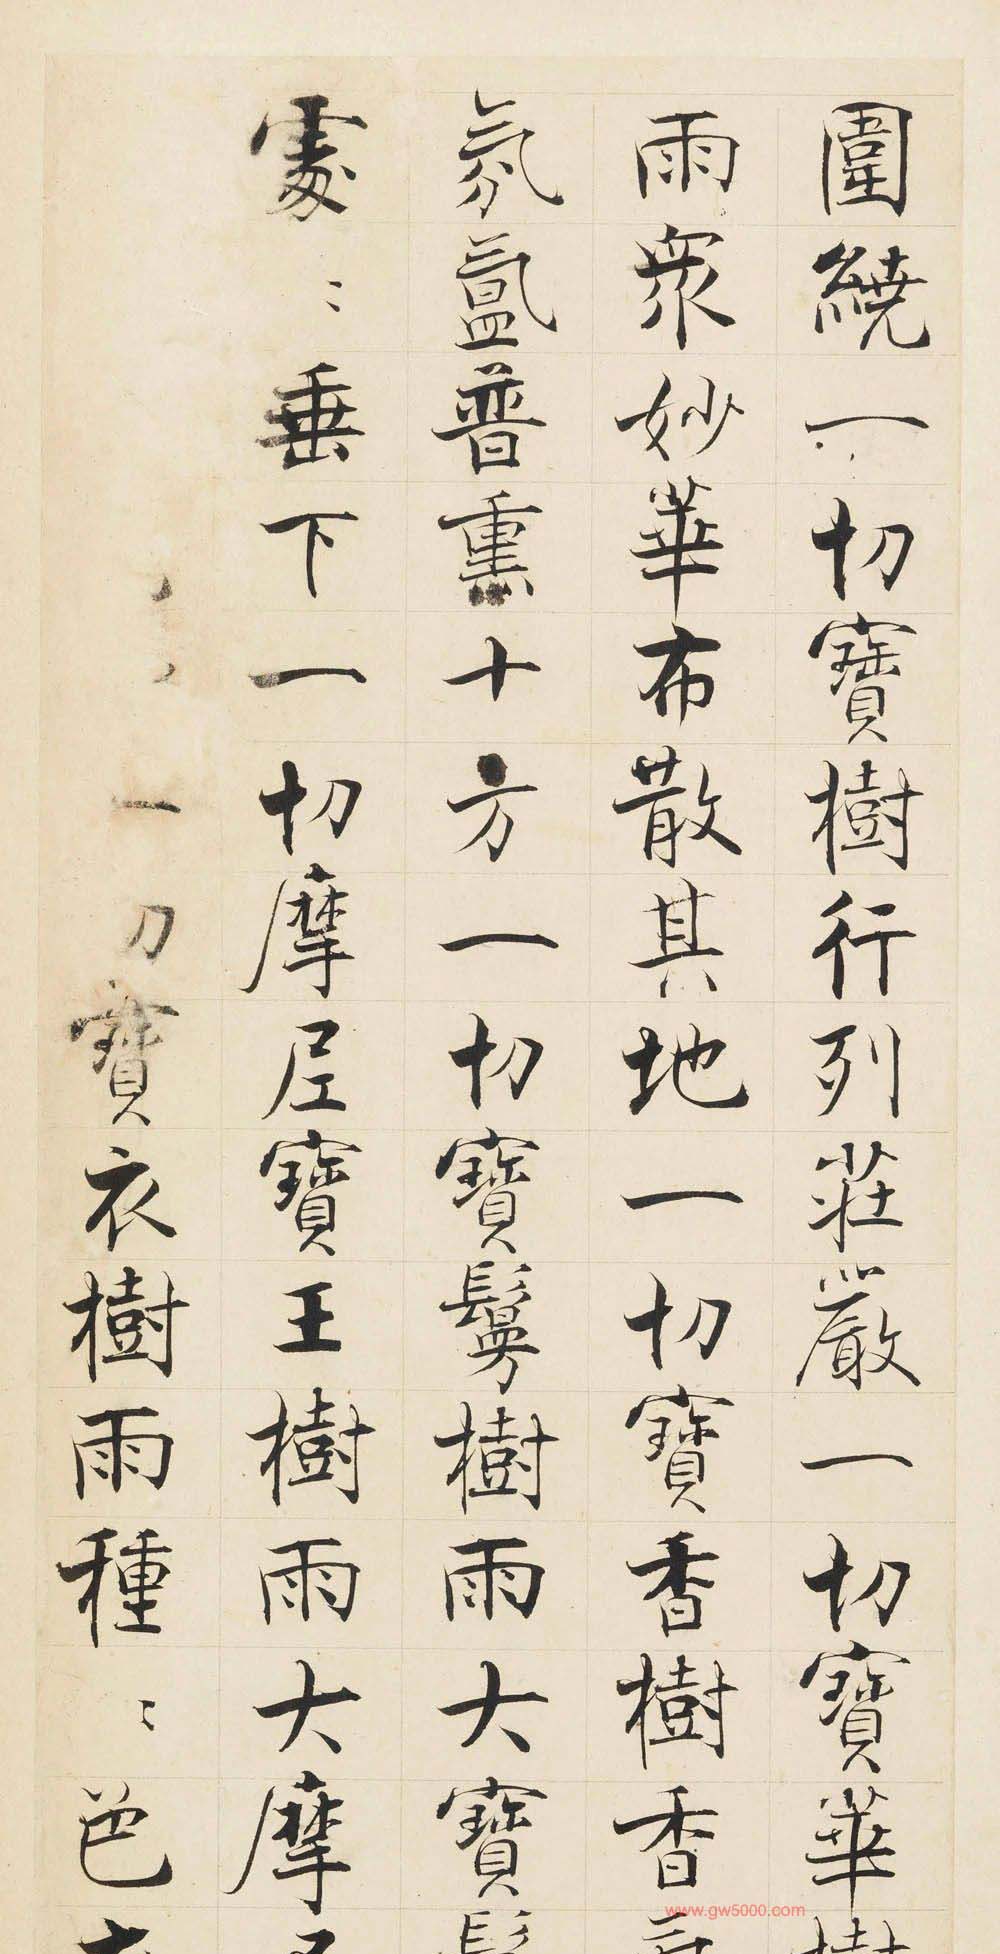 圍繞一切寶樹行列莊嚴一切寶華樹
雨眾妙華布散其地一切寶香樹香
氛氳普熏十方一切寶鬘樹雨大寶鬘
處〻垂下一切摩尼寶王樹雨大摩尼
一切寶衣樹雨種〻色衣
www.gw5000.com